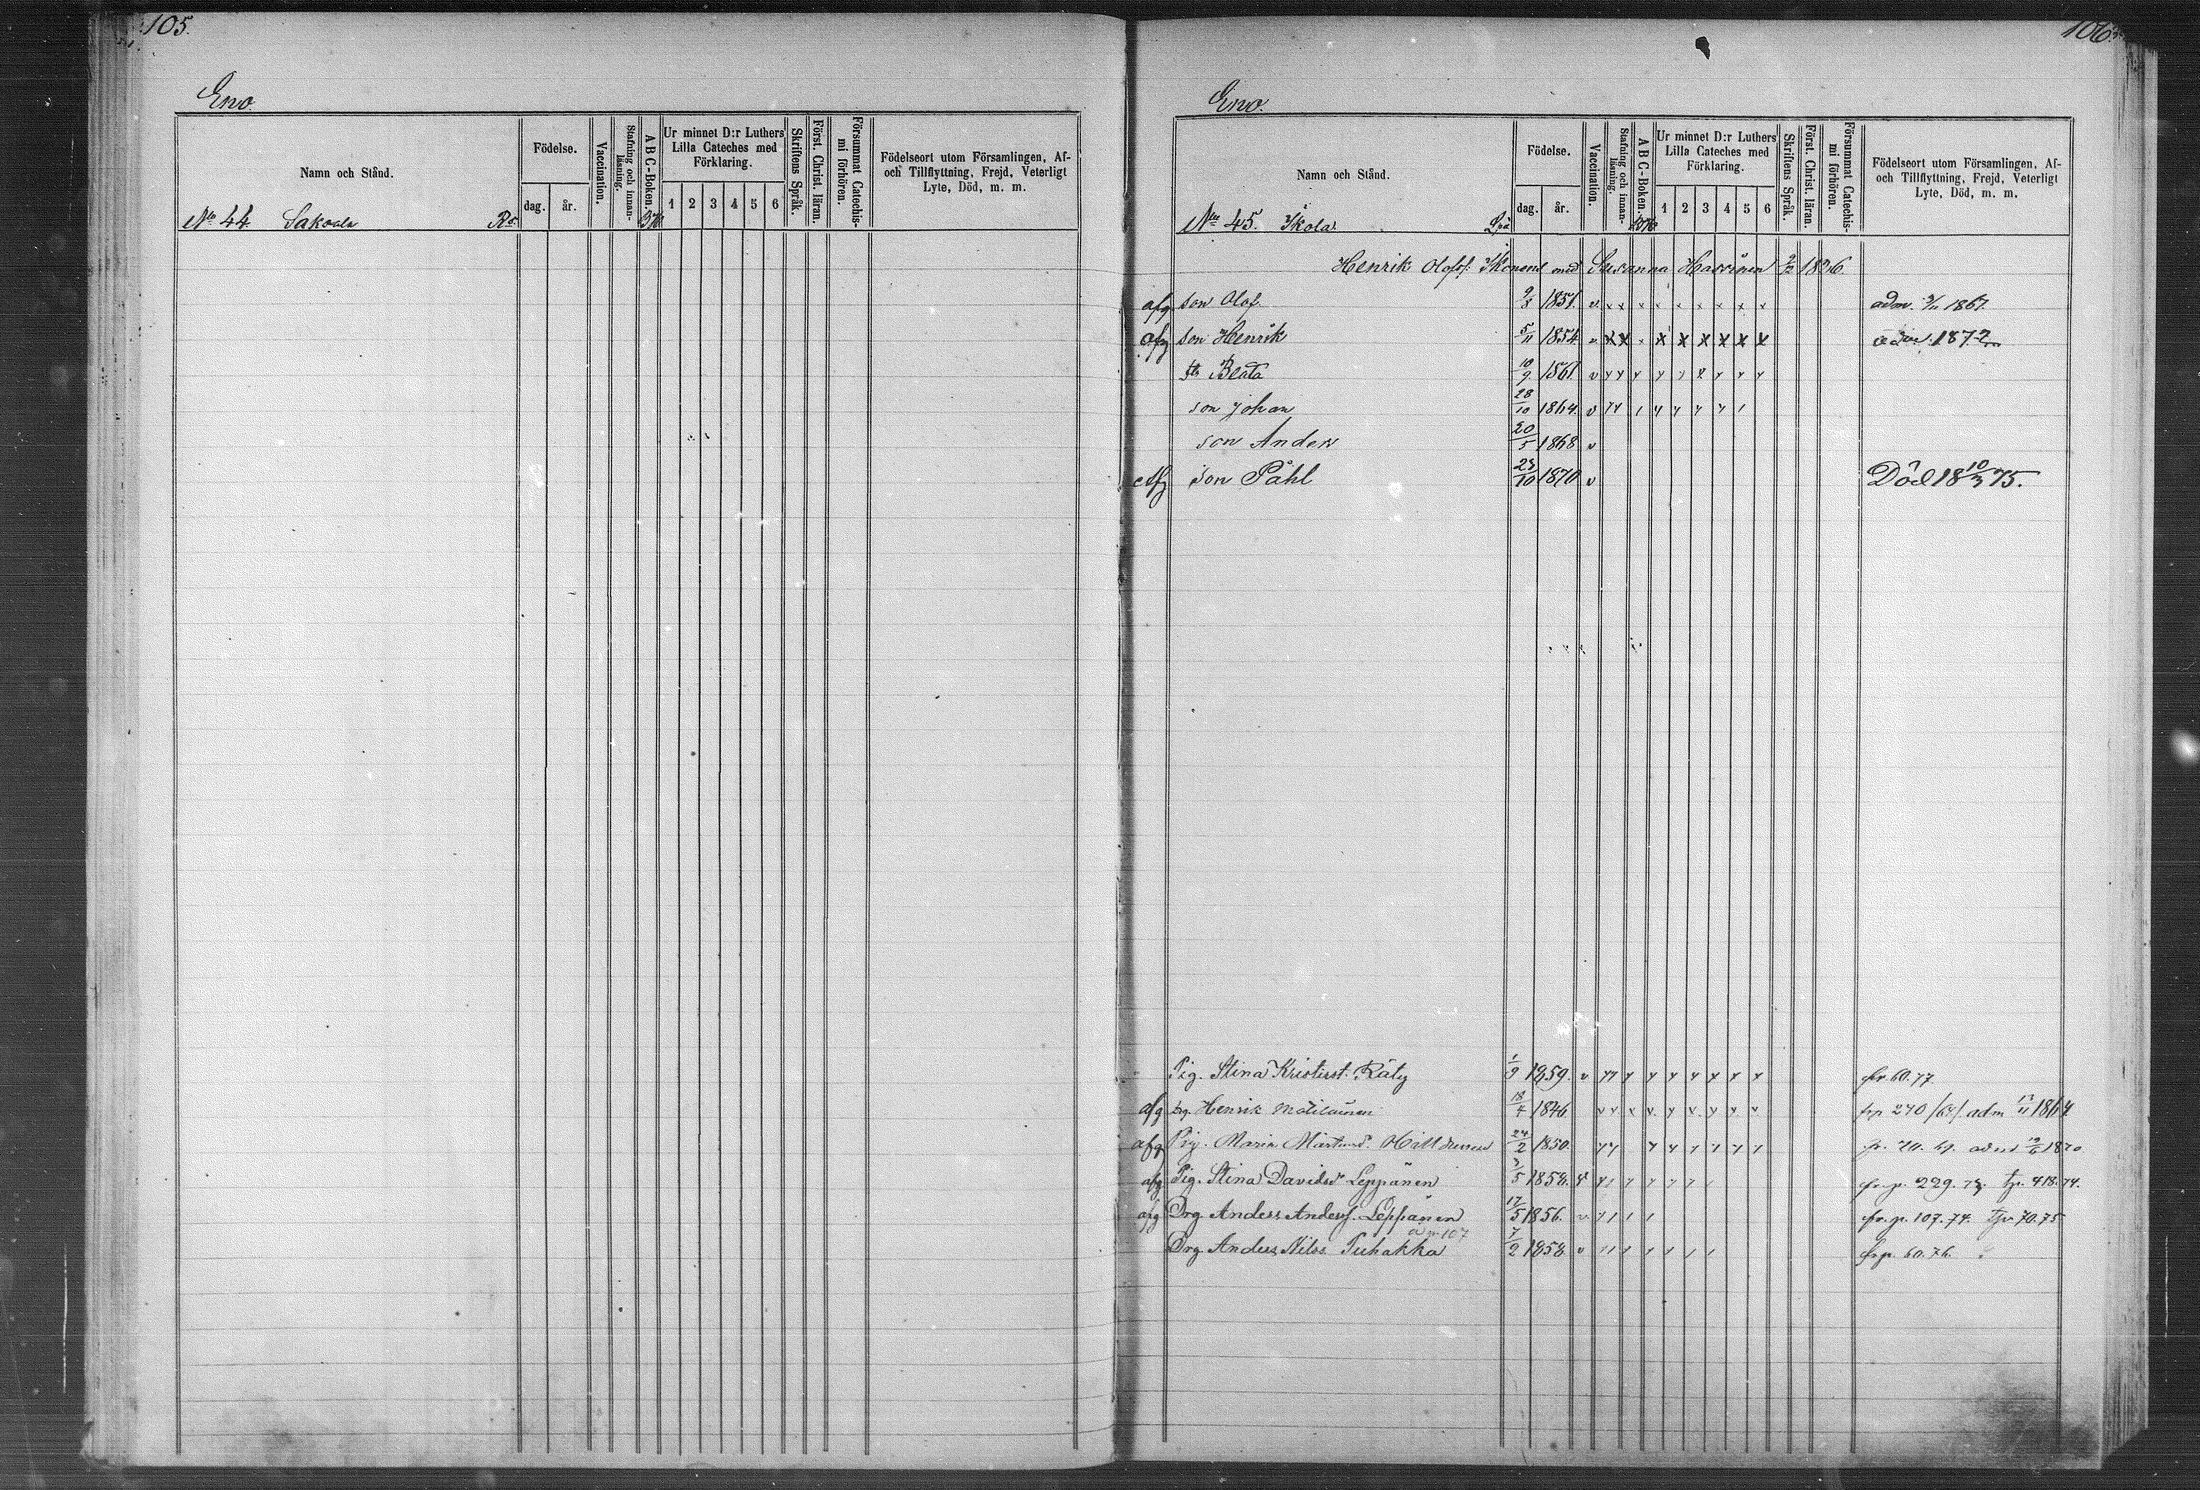 105.
Eno.
Namn och Stånd.
Födelse.
dag. år.
Vaccination.
Stafning och innan-läsning.
A B C-Boken.
Ur minnet D:r Luthers Lilla Cateches med Förklaring.
1 2 3 4 5 6
Skriftens Språk.
Först. Christ. läran.
Försummat Catechis-mi förhören.
Födelseort utom Församlingen, Af- och Tillflyttning, Frejd, Veterligt Lyte, Död, m. m.
No 44. Sakoala
106.
Eno.
Namn och Stånd.
Födelse.
dag. år.
Vaccination.
Stafning och innan-läsning.
A B C-Boken.
Ur minnet D:r Luthers Lilla Cateches med Förklaring.
1 2 3 4 5 6
Skriftens Språk.
Först. Christ. läran.
Försummat Catechis-mi förhören.
Födelseort utom Församlingen, Af- och Tillflyttning, Frejd, Veterligt Lyte, Död, m. m.
No 45. Ikola
Henrik Olofss. Ikonens med Susanna Hassinen
afg son Olof 1851. v x x x x x x x x x adm. 1867.
afg son Henrik 5/11 1854. v x x x x x x x x adm. 1872
Beata 10/9 1861 v
son Johan 28/10 1864. v
son Anders 20/5 1868 v
afg son Påhl 23/10 1870 v Död 18 10/3 75.
Pig. Stina Kristerst. Räty 1/9 1859. v fr. 60. 77.
afg Henrik Matilainen 18/4 1846 270 adm 1864
afg Pig. Maria 24/2 1850. 1870
afg Pig. Stina Davidsd. Leppänen 3/5 1858. fr. p. 229. tp. 418. 74.
afg Drg Anders Andersf. Leppänen 17/5 1856. v fr. p. 107. 74. tp 70. 75
107
Drg Anders Nilss Puhakka 7/2 1858 v frp. 60. 76.